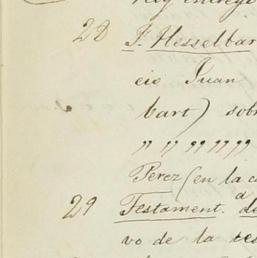 hoy entrega
28 J. Hesselbar
cio Juan
bart) sobr
" " " " " " "
Perez (en la c
29 Testament. a de
vo de la tes